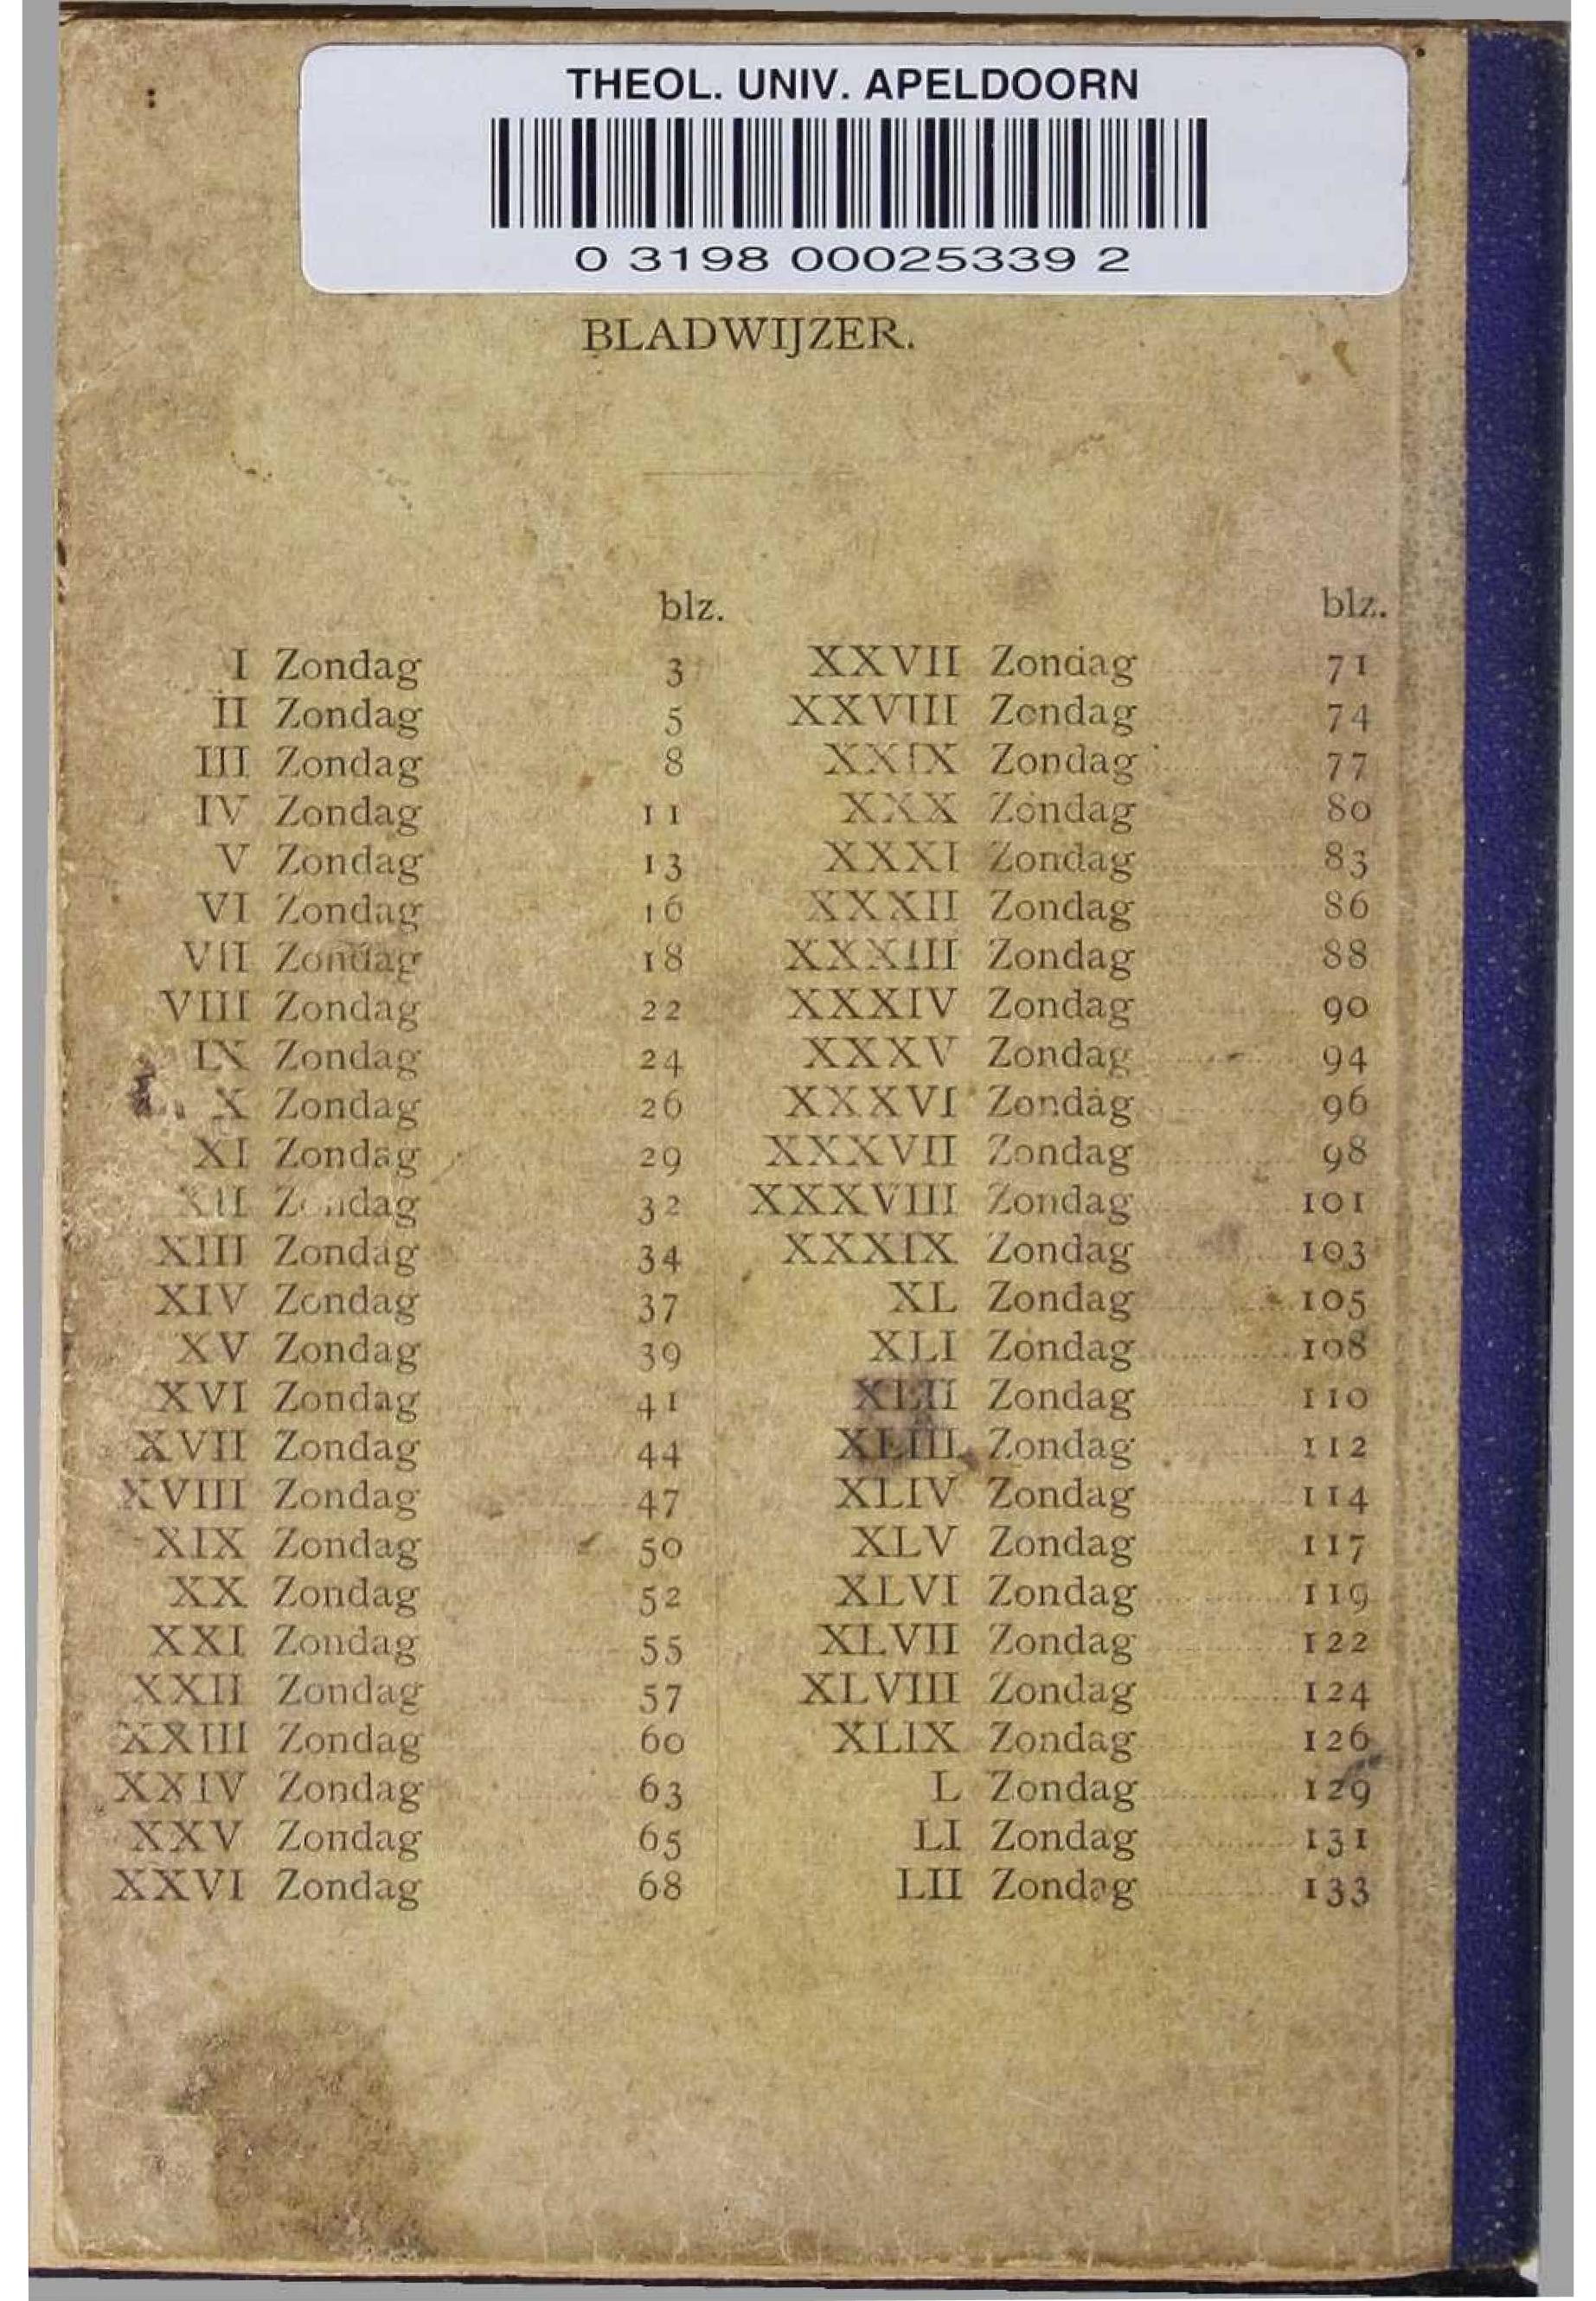 THEOL. UNIV. APELDOORN
0 3198 00025339 2
BLADWIJZER.
blz.
I Zondag 3
II Zondag 5
III Zondag 8
IV Zondag 11
V Zondag 13
VI Zondag 16
VII Zondag 18
VIII Zondag 22
IX Zondag 24
X Zondag 26
XI Zondag 29
XII Zondag 32
XIII Zondag 34
XIV Zondag 37
XV Zondag 39
XVI Zondag 41
XVII Zondag 44
XVIII Zondag 47
XIX Zondag 50
XX Zondag 52
XXI Zondag 55
XXII Zondag 57
XXIII Zondag 60
XXIV Zondag 63
XXV Zondag 65
XXVI Zondag 68
blz.
XXVII Zondag 71
XXVIII Zondag 74
XXIX Zondag 77
XXX Zondag 80
XXXI Zondag 83
XXXII Zondag 86
XXXIII Zondag 88
XXXIV Zondag 90
XXXV Zondag 94
XXXVI Zondag 96
XXXVII Zondag 98
XXXVIII Zondag 101
XXXIX Zondag 103
XL Zondag 105
XLI Zondag 108
XLII Zondag 110
XLIII Zondag 112
XLIV Zondag 114
XLV Zondag 117
XLVI Zondag 119
XLVII Zondag 122
XLVIII Zondag 124
XLIX Zondag 126
L Zondag 129
LI Zondag 131
LII Zondag 133